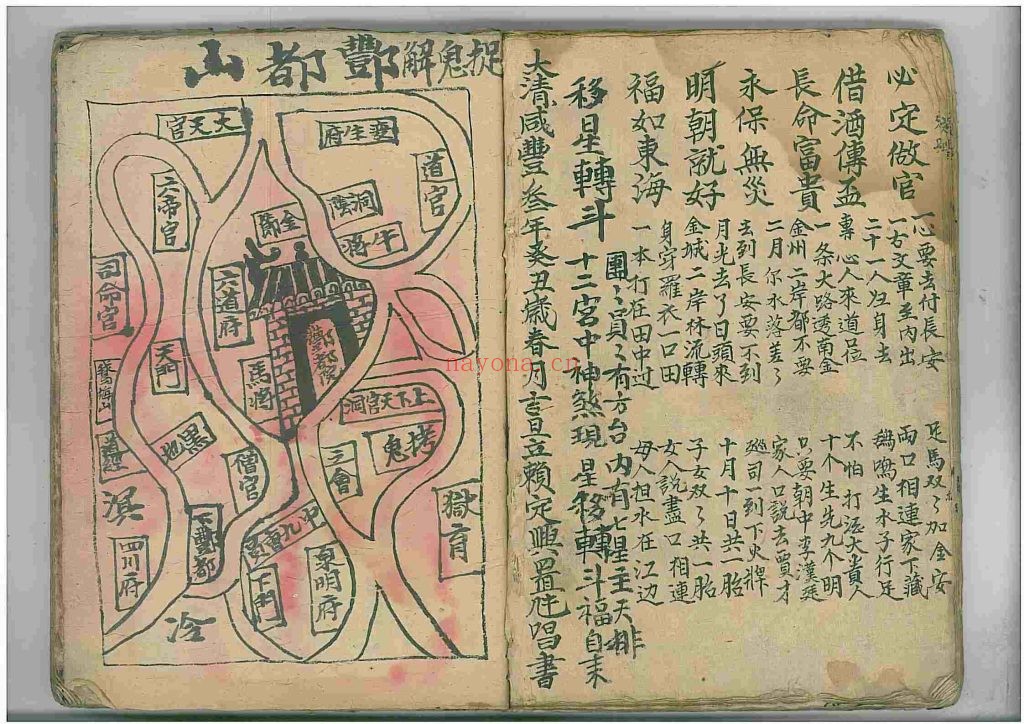 必定做官
借酒傳盃
長命富貴
永保無災
明朝就好
福如東海
一心要去付長安
一古文章至內出
二十一人归身去
專心人來道口位
一条大路透南金
金州二岸都不要
二月尔水落差了
去到長安要不到
月光去了日頭來
金城二岸林流轉
身穿羅衣一口田
一本打在田中过
足馬双々加全安
両口相連家下藏
鵶鳴生水子行足
不怕打流大貴人
十个生先九个明
只要朝中李漢廷
家人口說去賈才
廵司到下火牌
十月十日共一胎
子女双々共一胎
女人說盡口相連
母人担水在江边
移星轉斗
團々員々有方台內有七星主天排
十二宫中神煞現星移轉斗福自来
大清咸豐叁年癸丑歲春月吉旦立賴定興置唑唱書
捉鬼解酆都山
大天官
要生府
道官
六帝宫
洞陰
金節
牛將
司命官
六道府
酆都院
天門
馬將
上下天官洞
拷鬼
黑池
僧官
三會
獄育
溟
四川府
下酆都
下門
泉明府
冷
nayona.cn